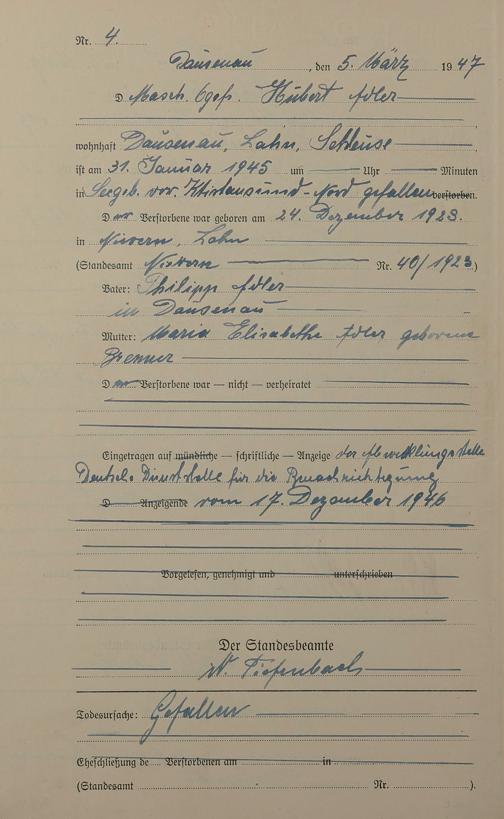 Nr. 4.
Dausenau, den 5. März 1947
D Masch. Ogefr. Hubert Adler
wohnhaft Dausenau, Lahn, Schleuse
ist am 31. Januar 1945 um Uhr Minuten
in Seegeb. vor Kristiansund-Nord gefallen verstorben.
Der Verstorbene war geboren am 24. Dezember 1923.
in Nievern, Lahn
(Standesamt Nievern Nr. 40/1923)
Vater: Philipp Adler
in Dausenau
Mutter: Maria Elisabethe Adler geborene
Brenner
Der Verstorbene war — nicht — verheiratet
Eingetragen auf mündliche — schriftliche — Anzeige der Abwicklungsstelle
Deutsche Dienststelle für die Benachrichtigung
D Anzeigende vom 17. Dezember 1946
Vorgelesen, genehmigt und unterschrieben
Der Standesbeamte
W. Tiefenbach
Todesursache: Gefallen
Eheschließung de Verstorbenen am in
(Standesamt Nr. ).